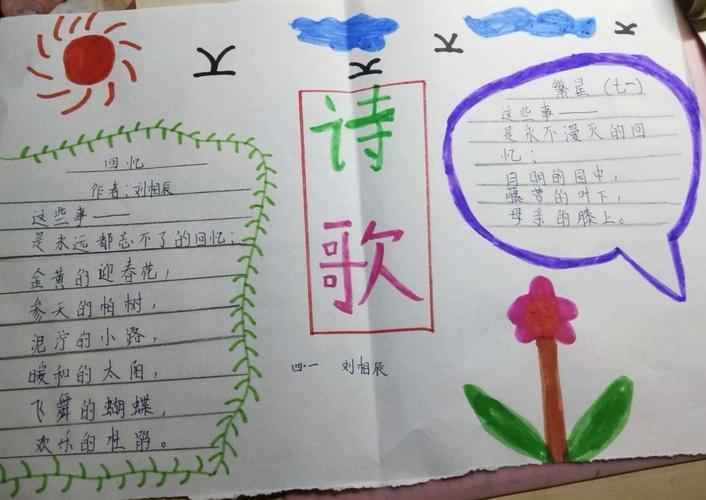 诗歌
回忆
作者:刘相辰
这些事——
是永远都忘不了的回忆:
金黄的迎春花,
参天的帕树,
泥泞的小路,
暖和的太阳,
飞舞的蝴蝶,
欢乐的
繁星(七一)
这些事——
是永不漫灭的回
忆:
月明的园中,
的叶下,
母亲的膝上。
四·一 刘相辰